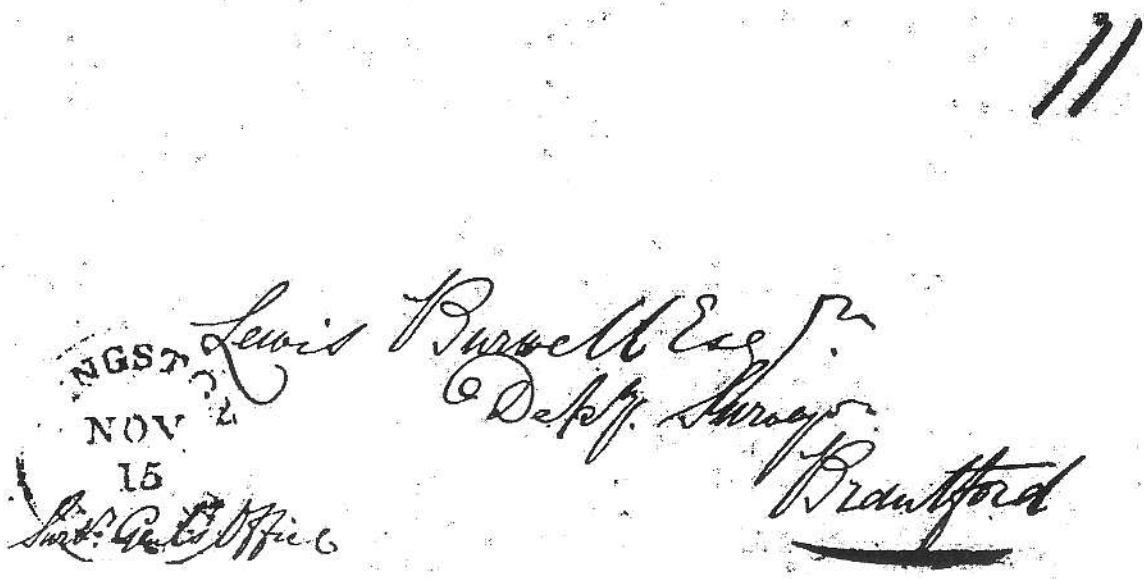 11
Lewis Burwell Esqr.
Depy. Surveyor
Brantford
NGSTON
NOV
15
Survr. Genl's Office